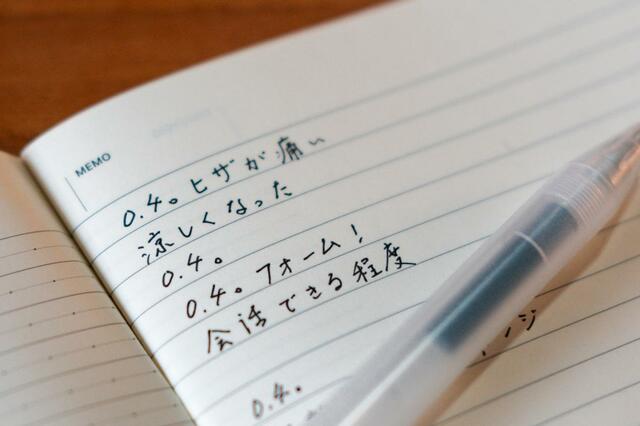 MEMO
0.4。ヒザが痛い
涼しくなった
0.4。
0.4。フォーム!
会話できる程度
0.4。